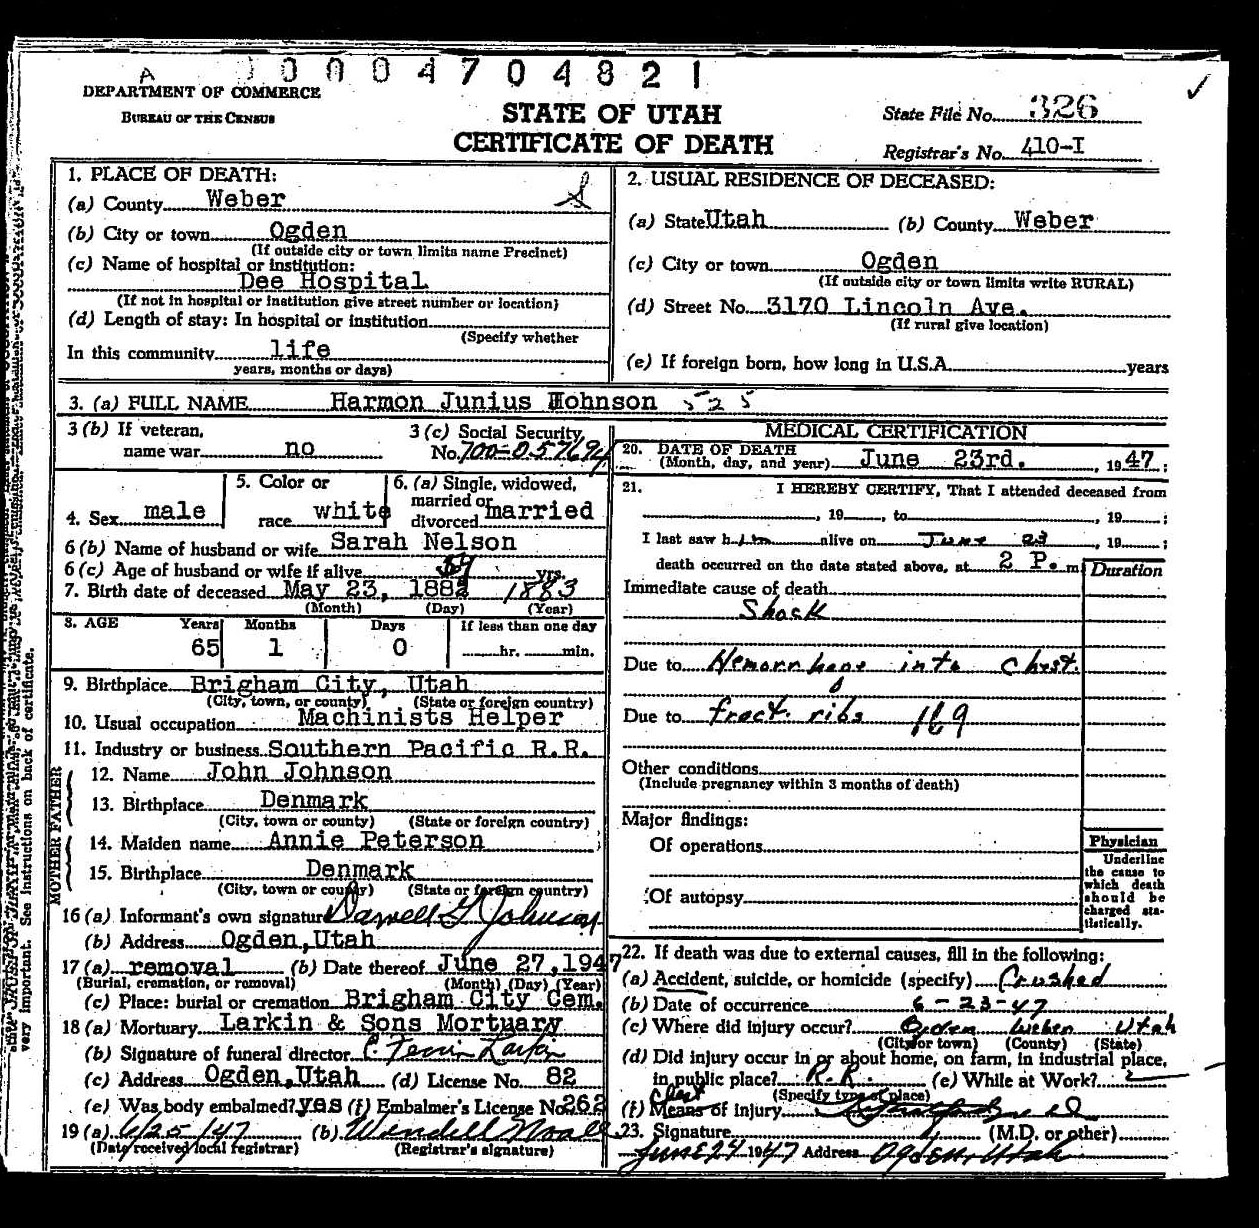 A 0004704821
DEPARTMENT OF COMMERCE
BUREAU OF THE CENSUS
STATE OF UTAH
CERTIFICATE OF DEATH
State File No. 326
Registrar's No. 410-I
1. PLACE OF DEATH:
(a) County Weber
(b) City or town Ogden
(If outside city or town limits name Precinct)
(c) Name of hospital or institution:
Dee Hospital
(If not in hospital or institution give street number or location)
(d) Length of stay: In hospital or institution
(Specify whether
In this community life
years, months or days)
2. USUAL RESIDENCE OF DECEASED:
(a) State Utah (b) County Weber
(c) City or town Ogden
(If outside city or town limits write RURAL)
(d) Street No. 3170 Lincoln Ave.
(If rural give location)
(e) If foreign born, how long in U.S.A. years
3. (a) FULL NAME Harmon Junius Johnson 525
3 (b) If veteran, name war no
3 (c) Social Security No. 700-05-7694
4. Sex male
5. Color or race white
6. (a) Single, widowed, married or divorced married
6 (b) Name of husband or wife Sarah Nelson
6 (c) Age of husband or wife if alive yrs.
7. Birth date of deceased May 23, 1882 1883
(Month) (Day) (Year)
8. AGE Years Months Days If less than one day
65 1 0 hr. min.
9. Birthplace Brigham City, Utah
(City, town, or county) (State or foreign country)
10. Usual occupation Machinists Helper
11. Industry or business Southern Pacific R.R.
FATHER
12. Name John Johnson
13. Birthplace Denmark
(City, town or county) (State or foreign country)
MOTHER
14. Maiden name Annie Peterson
15. Birthplace Denmark
(City, town or county) (State or foreign country)
16 (a) Informant's own signature Darrell G Johnson
(b) Address Ogden, Utah
17 (a) removal (b) Date thereof June 27, 1947
(Burial, cremation, or removal) (Month) (Day) (Year)
(c) Place: burial or cremation Brigham City Cem.
18 (a) Mortuary Larkin & Sons Mortuary
(b) Signature of funeral director Larkin
(c) Address Ogden, Utah (d) License No. 82
(e) Was body embalmed? yes (f) Embalmer's License No. 262
19 (a) 6/25/47 (b) Wendell Noall
(Date received local registrar) (Registrar's signature)
MEDICAL CERTIFICATION
20. DATE OF DEATH
(Month, day, and year) June 23rd. , 1947;
21. I HEREBY CERTIFY, That I attended deceased from
, 19 , to , 19 ;
I last saw him alive on June 23 , 19 ;
death occurred on the date stated above, at 2 P. m.
Duration
Immediate cause of death
Shock
Due to Hemorrhage into Chest.
Due to fract. ribs 169
Other conditions
(Include pregnancy within 3 months of death)
Major findings:
Of operations
Of autopsy
Physician
Underline the cause to which death should be charged statistically.
22. If death was due to external causes, fill in the following:
(a) Accident, suicide or homicide (specify) Crushed
(b) Date of occurrence 6-23-47
(c) Where did injury occur? Ogden Weber Utah
(City or town) (County) (State)
(d) Did injury occur in or about home, on farm, in industrial place,
in public place? R.R. (e) While at Work?
(Specify type of place)
Chest
(f) Means of injury
23. Signature (M.D. or other)
June 24 1947 Address Ogden, Utah
very important. See instructions on back of certificate.